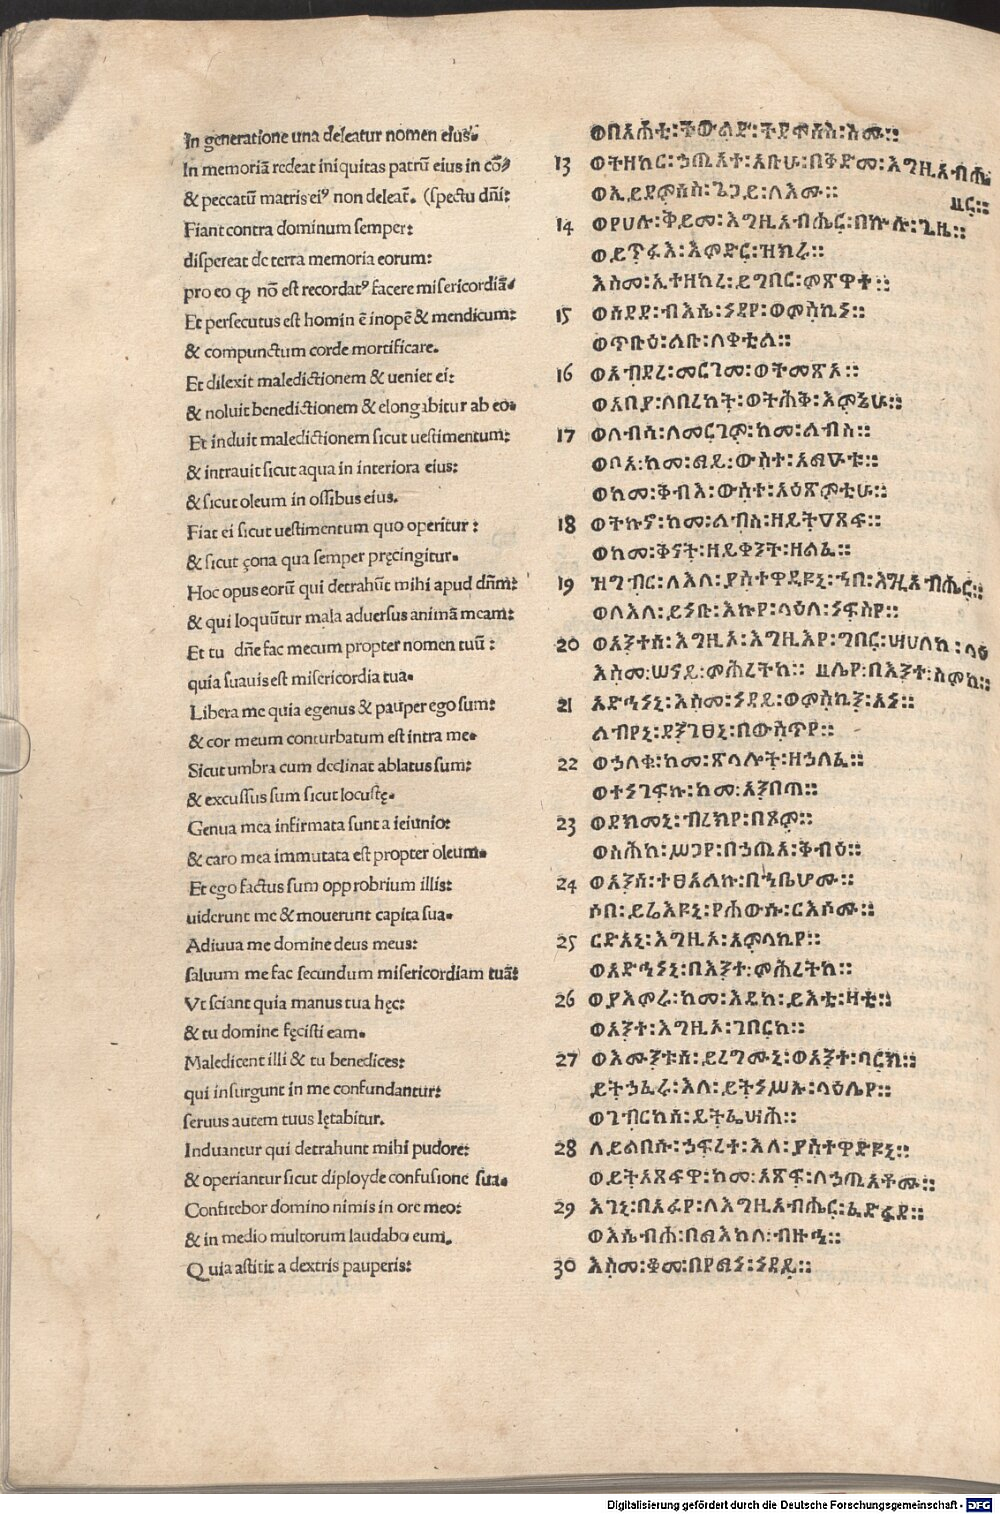 In generatione una deleatur nomen eius.
In memoriã redeat iniquitas patrũ eius in cõ
& peccatũ matris eiꝰ non deleat̃. (spectu dñi:
Fiant contra dominum semper:
dispereat de terra memoria eorum:
pro eo ꝙ nõ est recordatꝰ facere misericordiã
Et persecutus est hominẽ inopẽ & mendicum:
& compunctum corde mortificare.
Et dilexit maledictionem & ueniet ei:
& noluit benedictionem & elongabitur ab eo.
Et induit maledictionem sicut uestimentum:
& intrauit sicut aqua in interiora eius:
& sicut oleum in ossibus eius.
Fiat ei sicut uestimentum quo operitur:
& sicut çona qua semper pręcingitur.
Hoc opus eorũ qui detrahũt mihi apud dñm:
& qui loquũtur mala aduersus animã meam:
Et tu dñe fac mecum propter nomen tuũ:
quia suauis est misericordia tua.
Libera me quia egenus & pauper ego sum:
& cor meum conturbatum est intra me.
Sicut umbra cum declinat ablatus sum:
& excussus sum sicut locustę.
Genua mea infirmata sunt a ieiunio:
& caro mea immutata est propter oleum.
Et ego factus sum opprobrium illis:
uiderunt me & mouerunt capita sua.
Adiuua me domine deus meus:
saluum me fac secundum misericordiam tuã:
Vt sciant quia manus tua hęc:
& tu domine fęcisti eam.
Maledicent illi & tu benedices:
qui insurgunt in me confundantur:
seruus autem tuus lętabitur.
Induantur qui detrahunt mihi pudore:
& operiantur sicut diployde confusione sua.
Confitebor domino nimis in ore meo:
& in medio multorum laudabo eum.
Quia astitit a dextris pauperis:
ወበአሐቲ፡ትውልድ፡ትደምሰስ፡ስሙ።
13 ወትዘከር፡ኃጢአተ፡አቡሁ፡በቅድመ፡እግዚአብሔ
ወኢይደምሰስ፡ጌጋይ፡ለእሙ። ዘር።
14 ወየሀሉ፡ቅድመ፡እግዚአብሔር፡በኵሉ፡ጊዜ።
ወይጥፋእ፡እምድር፡ዝክሩ።
እስመ፡ኢተዘከረ፡ይግበር፡ምጽዋተ።
15 ወሰደደ፡ብእሴ፡ነዳየ፡ወምስኪነ።
ወጥቡዕ፡ልቡ፡ለቀቲል።
16 ወአብደረ፡መርገመ፡ወትመጽኦ።
ወአበያ፡ለበረከት፡ወትሕቅ፡እምኔሁ።
17 ወለብሳ፡ለመርገም፡ከመ፡ልብስ።
ወቦአ፡ከመ፡ማይ፡ውስተ፡አማዑቱ።
ወከመ፡ቅብእ፡ውስተ፡አዕጽምቲሁ።
18 ወትኩኖ፡ከመ፡ልብስ፡ዘይትዐጸፍ።
ወከመ፡ቅናት፡ዘይቀንት፡ዘልፈ።
19 ዝግብር፡ለእለ፡ያስተዋድዩኒ፡ኀበ፡እግዚአብሔር።
ወለእለ፡ይነቡ፡እኩየ፡ላዕለ፡ነፍስየ።
20 ወአንተሰ፡እግዚኦ፡እግዚእየ፡ግበር፡ሣህለከ፡ላዕ
እስመ፡ሠናይ፡ምሕረትከ። ሌየ፡በእንተ፡ስምከ።
21 አድኅነኒ፡እስመ፡ነዳይ፡ወምስኪን፡አነ።
ልብየኒ፡ደንገፀኒ፡በውስጥየ።
22 ወኃለቁ፡ከመ፡ጽላሎት፡ዘኃለፈ።
ወተነገፍኩ፡ከመ፡አንበጣ።
23 ወደክመኒ፡ብረክየ፡በጾም።
ወስሕከ፡ሥጋየ፡በኃጢአ፡ቅብዕ።
24 ወአንሰ፡ተፀአልኩ፡በኀቤሆሙ።
ሶበ፡ይሬእዩኒ፡የሐውሱ፡ርእሶሙ።
25 ርድአኒ፡እግዚኦ፡አምላኪየ።
ወአድኅነኒ፡በእንተ፡ምሕረትከ።
26 ወያእምሩ፡ከመ፡እዴከ፡ይእቲ፡ዛቲ።
ወአንተ፡እግዚኦ፡ገበርካ።
27 ወእሙንቱሰ፡ይረግሙኒ፡ወአንተ፡ባርክ።
ይትኃፈሩ፡እለ፡ይትነሥኡ፡ላዕሌየ።
ወገብርከሰ፡ይትፌሣሕ።
28 ለይልበሱ፡ኃፍረተ፡እለ፡ያስተዋድዩኒ።
ወይትአጸፍዋ፡ከመ፡አጽፍ፡ለኃጢአቶሙ።
29 እገኒ፡በአፉየ፡ለእግዚአብሔር፡ፈድፋደ።
ወእሴብሖ፡በማእከለ፡ብዙኅ።
30 እስመ፡ቆመ፡በየማነ፡ነዳይ።
Digitalisierung gefördert durch die Deutsche Forschungsgemeinschaft - DFG